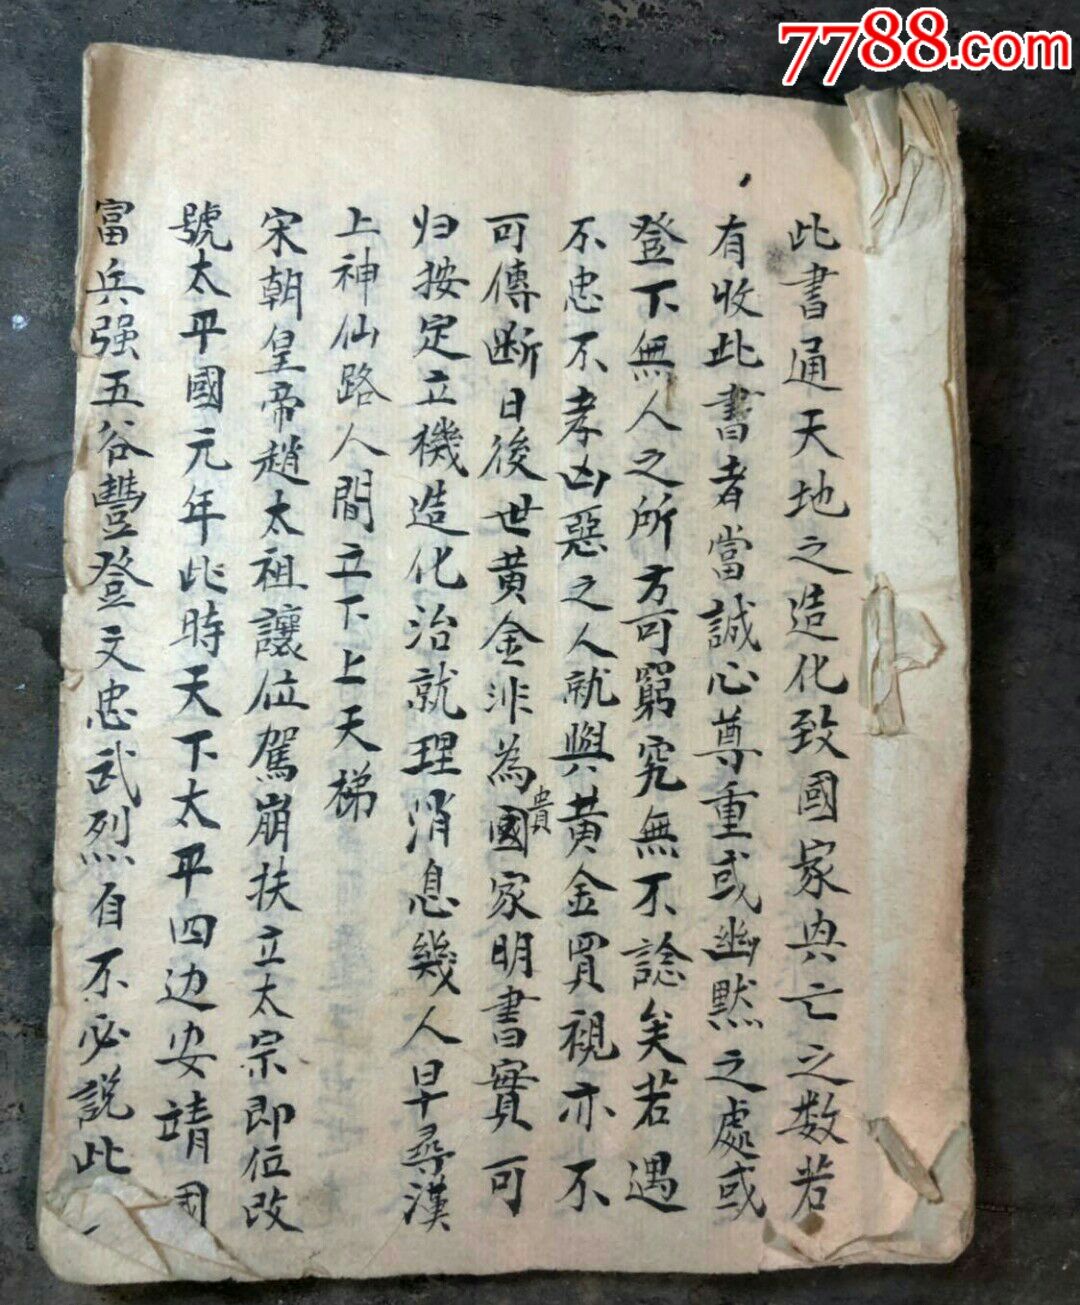 7788.com
此書通天地之造化致國家興亡之数若
有收此書者當誠心尊重或幽默之處或
登下無人之所方可窮究無不諗矣若遇
不忠不孝凶惡之人就與黄金買視亦不
可傳断日後世黄金非為國家明書實可
貴
归按定立機造化治就理消息幾人早尋漢
上神仙路人間立下上天梯
宋朝皇帝趙太祖讓位駕崩扶立太宗即位改
號太平國元年此時天下太平四边安靖國
富兵强五谷豐登文忠武烈自不必説此